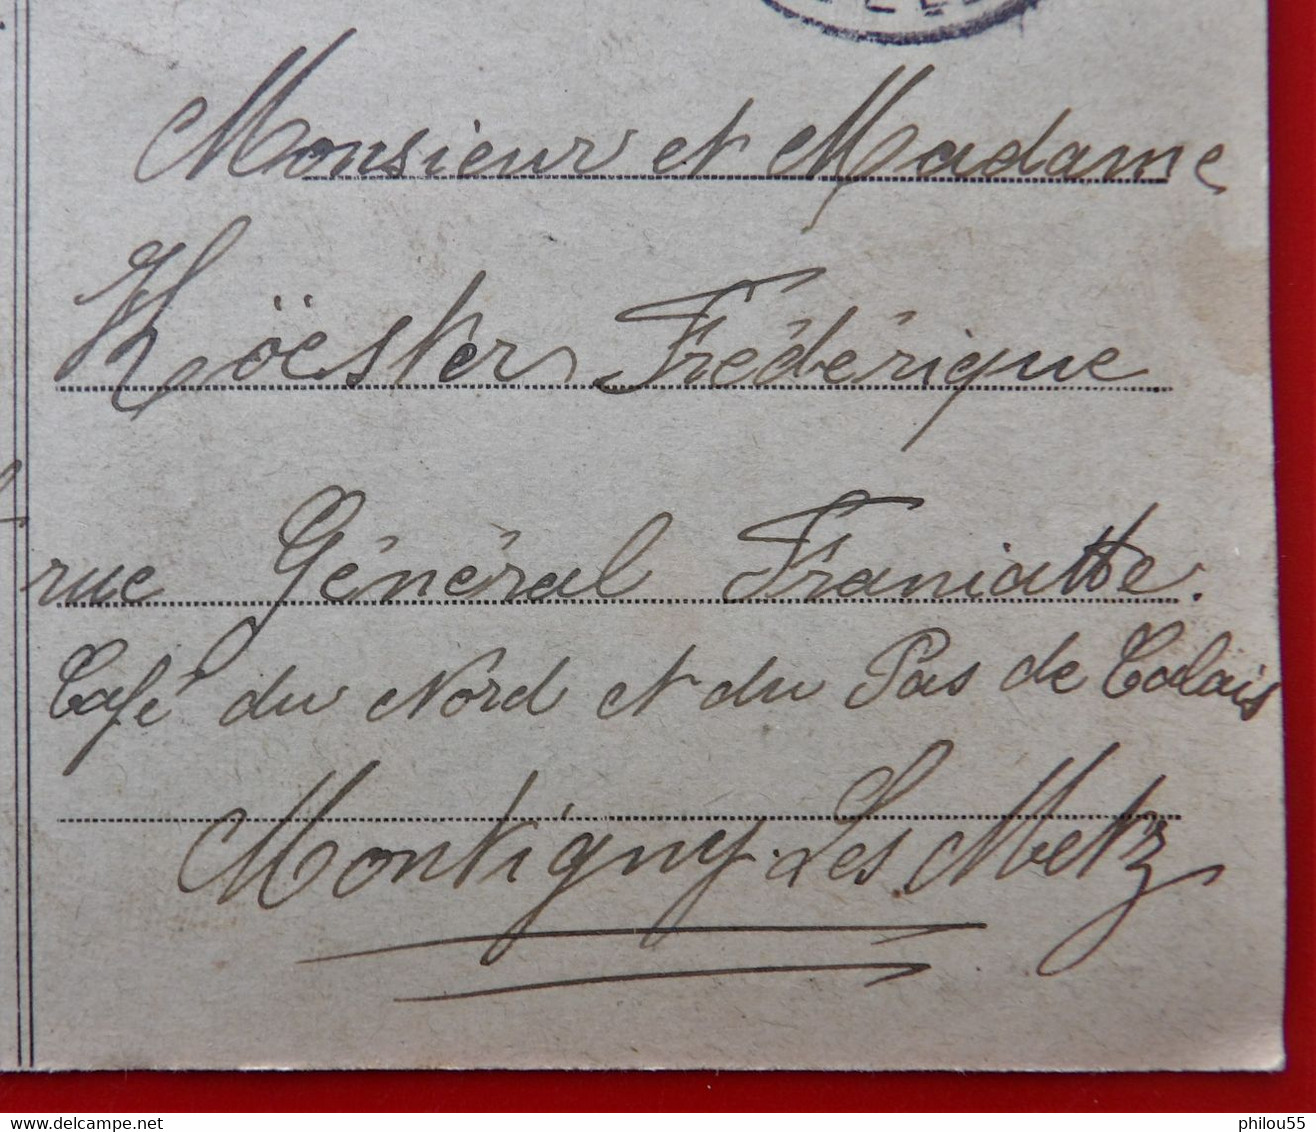 Monsieur et Madame
Köester Frédérique
rue Général Franiatte.
Café du Nord et du Pas de Calais
Montigny-Les-Metz
www.delcampe.net
philou55